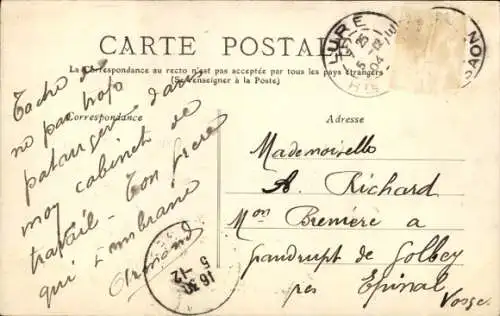 CARTE POSTALE
La Correspondance au recto n'est pas acceptée par tous les pays étrangers
(Se renseigner à la Poste)
Correspondance
Adresse
Tache de
ne pas trop
patauger dans
mon cabinet de
travail - Ton frère
qui t'embrasse
Armand
Mademoiselle
A. Richard
Mon Bremière a
de Golbey
près Epinal
Vosges
LURE
25
5-12
04
16 30
5-12